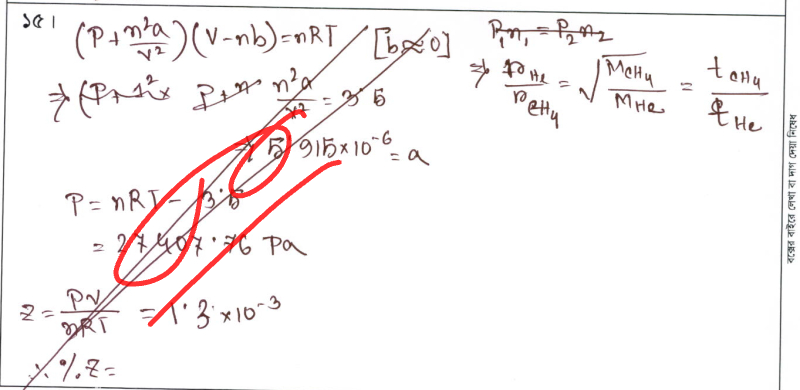 ১৫।
(P + n²a/V²) (V-nb) = nRT [b≈0]
⇒ (P+1²x P+n n²a/V² = 3.5
⇒ 5.915×10⁻⁶ = a
P = nRT - 3.5
= 27407.76 Pa
Z = PV/nRT = 1.3×10⁻³
∴ %Z =
P₁n₁ = P₂n₂
⇒ n_He/n_CH₄ = √(M_CH₄/M_He) = t_CH₄/t_He
বক্সের বাইরে লেখা বা দাগ দেয়া নিষেধ